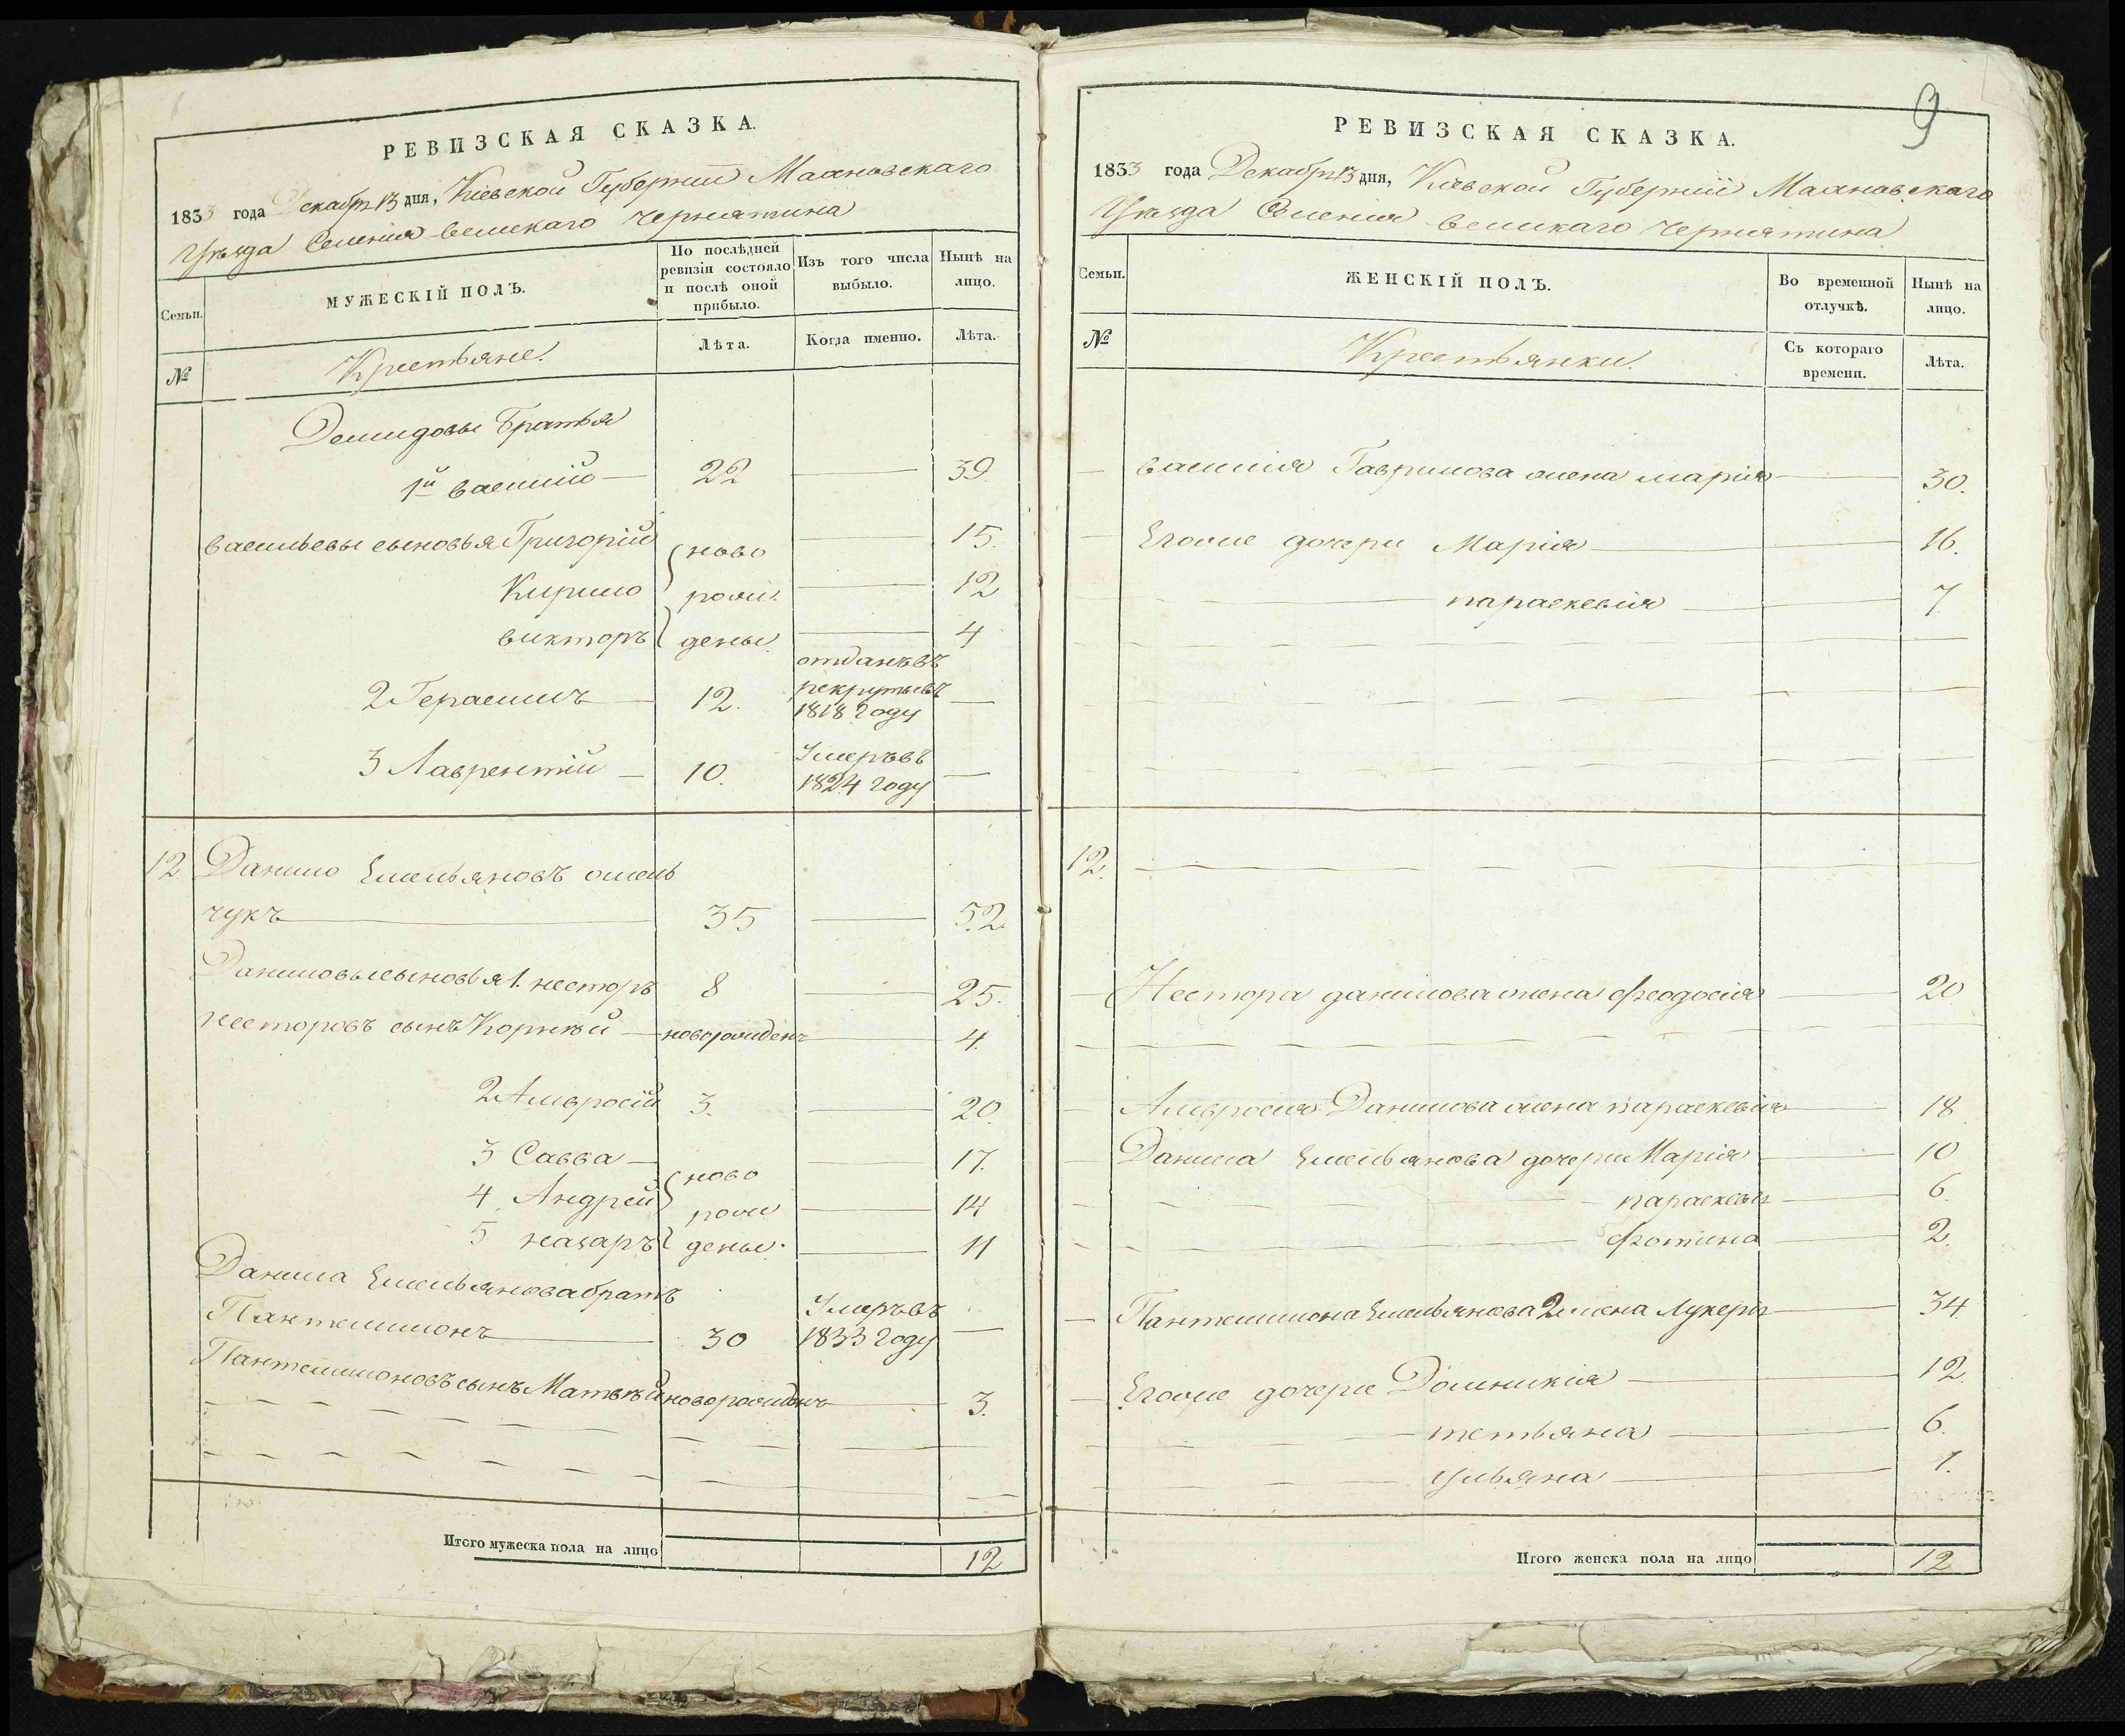 РЕВИЗСКАЯ СКАЗКА.
1833 года Декабря 13 дня, Кіевской Губерніи Махновскаго
Уѣзда Селенія великаго Чернятина
Семьи.
МУЖЕСКІЙ ПОЛЪ.
По послѣдней ревизіи состояло и послѣ оной прибыло.
Изъ того числа выбыло.
Нынѣ на лицо.
№
Крестьяне.
Лѣта.
Когда именно.
Лѣта.
Демидовы Братья
1й василій 22 39.
васильевы сыновья Григорій ново 15.
Кирило рож 12
викторъ дены. 4
2 Герасимъ 12. отданъ въ рекруты въ 1818 году
3 Лаврентій 10. Умеръ въ 1824 году
12 Данило Емельяновъ омель
чукъ 35 52.
Даниловы сыновья 1. несторъ 8 25.
несторовъ сынъ Корнѣй новорожденъ 4.
2 Амвросій 3. 20.
3 Савва ново 17.
4 Андрей рож 14
5 назаръ дены. 11
Данила Емельянова братъ
Пантелимонъ 30 Умеръ въ 1833 году
Пантелимоновъ сынъ Матвѣй новорожденъ 3.
Итого мужеска пола на лицо 12
9
РЕВИЗСКАЯ СКАЗКА.
1833 года Декабря 13 дня, Кіевской Губерніи Махновскаго
Уѣзда Селенія великаго Чернятина
Семьи.
ЖЕНСКІЙ ПОЛЪ.
Во временной отлучкѣ.
Нынѣ на лицо.
№
Крестьянки.
Съ котораго времени.
Лѣта.
василія Гаврилова жена марія 30.
Егоже дочери Марія 16.
параскевія 7
12.
Нестора данилова жена феодосія 20
Амвросія Данилова жена параскевія 18
Данила Емельянова дочери Марія 10
параскевія 6.
фотина 2.
Пантелимона Емельянова 2 жена Лукерія 34
Егоже дочери Домникія 12.
тетьяна 6.
ульяна 1.
Итого женска пола на лицо 12